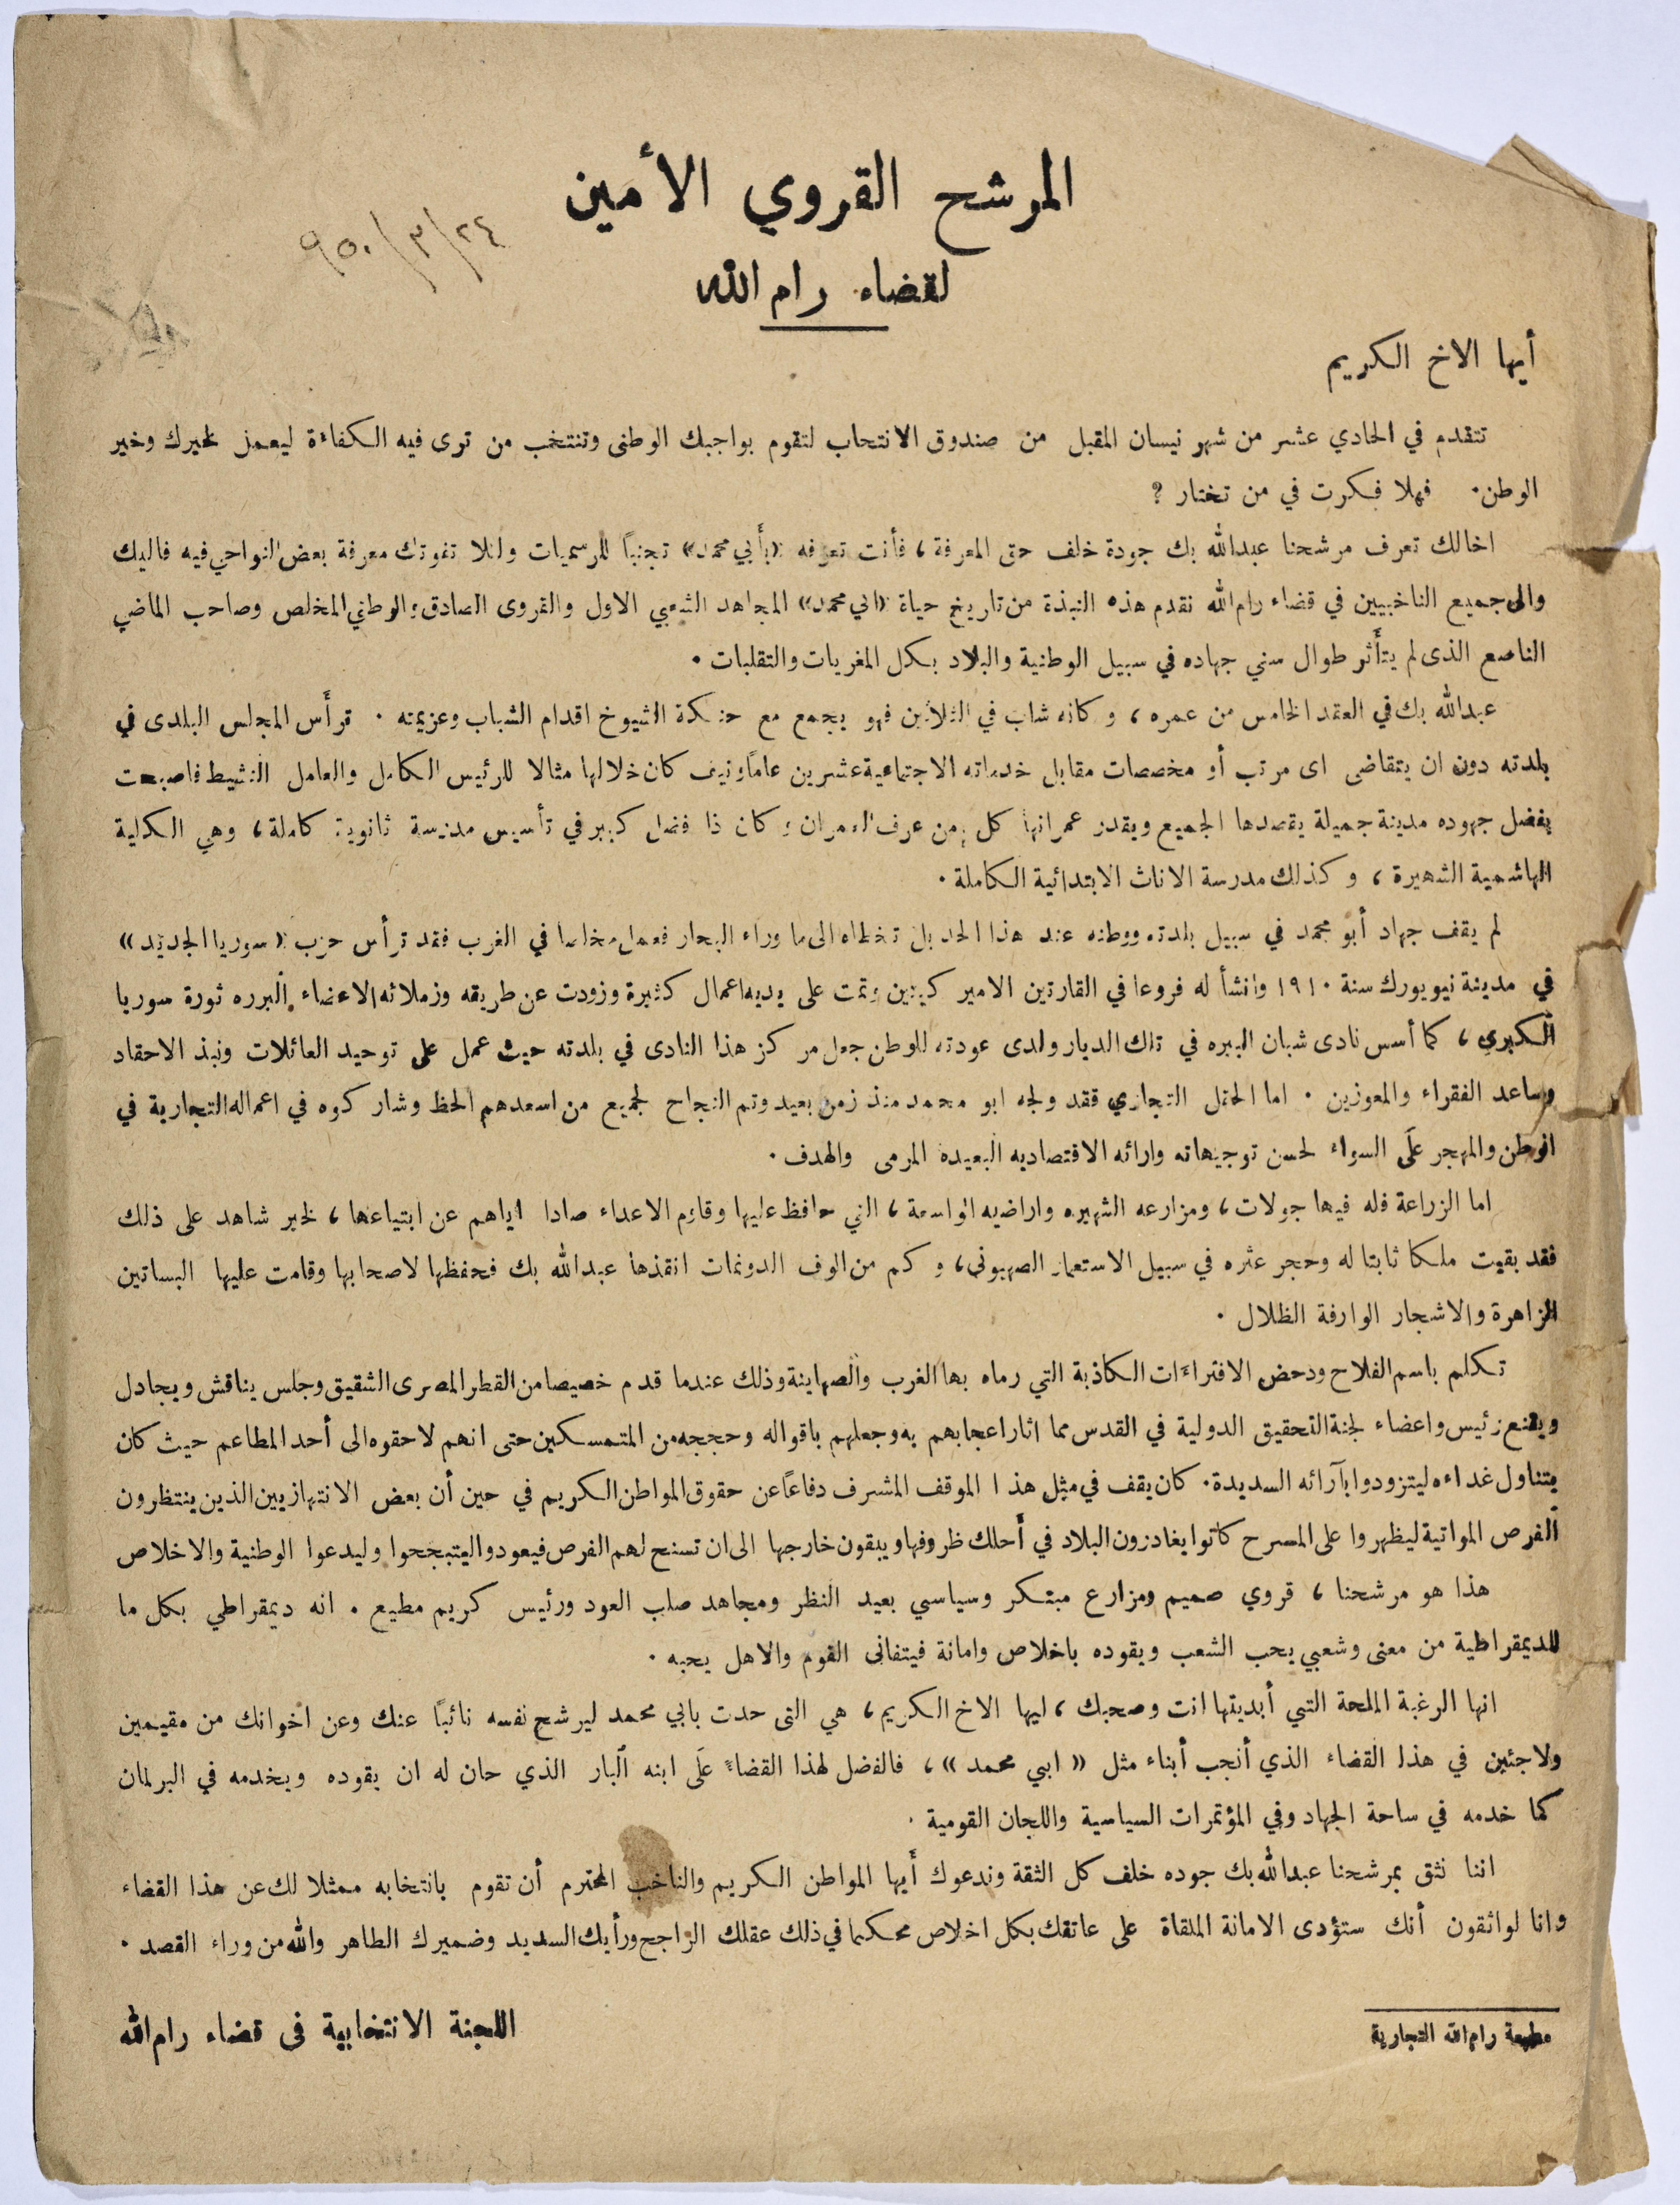 المرشح القروي الأمين
٢٤/٣/٩٥٠
لقضاء رام الله
أيها الاخ الكريم
تتقدم في الحادي عشر من شهر نيسان المقبل من صندوق الانتخاب لتقوم بواجبك الوطنى وتنتخب من ترى فيه الكفاءة ليعمل لخيرك وخير
الوطن. فهلا فكرت في من تختار ؟
اخالك تعرف مرشحنا عبدالله بك جودة خلف حق المعرفة ، فأنت تعرفه «بأبي محمد» تجنباً للرسميات ولئلا تفوتك معرفة بعض النواحي فيه فاليك
والى جميع الناخبيين في قضاء رام الله نقدم هذه النبذة من تاريخ حياة «ابي محمد» المجاهد الشعبي الاول والقروى الصادق والوطني المخلص وصاحب الماضي
الناصع الذى لم يتأثر طوال سني جهاده في سبيل الوطنية والبلاد بكل المغريات والتقلبات .
عبدالله بك في العقد الخامس من عمره ، وكانه شاب في الثلاثين فهو يجمع مع حنكة الشيوخ اقدام الشباب وعزيمته . ترأس المجلس البلدى في
بلدته دون ان يتقاضى اى مرتب أو مخصصات مقابل خدماته الاجتماعية عشرين عاماً ونيف كان خلالها مثالا للرئيس الكامل والعامل النشيط فاصبحت
بفضل جهوده مدينة جميلة يقصدها الجميع ويقدر عمرانها كل من عرف العمران وكان ذا فضل كبير في تأسيس مدرسة ثانوية كاملة ، وهي الكلية
الهاشمية الشهيرة ، وكذلك مدرسة الاناث الابتدائية الكاملة .
لم يقف جهاد أبو محمد في سبيل بلدته ووطنه عند هذا الحد بل تخطاه الى ما وراء البحار فعمل مخلصا في الغرب فقد ترأس حزب «سوريا الجديد»
في مدينة نيويورك سنة ١٩١٠ وانشأ له فروعا في القارتين الامير كيتين وتمت على يديه اعمال كثيرة وزودت عن طريقه وزملائه الاعضاء البرره ثورة سوريا
الكبرى ، كما أسس نادى شبان البيره في تلك الديار ولدى عودته للوطن جعل مركز هذا النادى في بلدته حيث عمل على توحيد العائلات ونبذ الاحقاد
وساعد الفقراء والمعوزين . اما الحقل التجاري فقد ولجه ابو محمد منذ زمن بعيد وتم النجاح لجميع من اسعدهم الحظ وشاركوه في اعماله التجارية في
الوطن والمهجر على السواء لحسن توجيهاته وارائه الاقتصاديه البعيدة المرمى والهدف .
اما الزراعة فله فيها جولات ، ومزارعه الشهيره واراضيه الواسعة ، التي حافظ عليها وقاوم الاعداء صادا اياهم عن ابتياعها ، لخير شاهد على ذلك
فقد بقيت ملكا ثابتا له وحجر عثره في سبيل الاستعمار الصهيوني ، وكم من الوف الدونمات انقذها عبدالله بك فحفظها لاصحابها وقامت عليها البساتين
الزاهرة والاشجار الوارفة الظلال .
تكلم باسم الفلاح ودحض الافتراءات الكاذبة التي رماه بها الغرب والصهاينة وذلك عندما قدم خصيصا من القطر المصرى الشقيق وجلس يناقش ويجادل
ويقنع رئيس واعضاء لجنة التحقيق الدولية في القدس مما اثار اعجابهم به وجعلهم باقواله وحججه من المتمسكين حتى انهم لاحقوه الى أحد المطاعم حيث كان
يتناول غداءه ليتزودوا بآرائه السديدة . كان يقف في مثل هذا الموقف المشرف دفاعاً عن حقوق المواطن الكريم في حين أن بعض الانتهازيين الذين ينتظرون
الفرص المواتية ليظهروا على المسرح كانوا يغادرون البلاد في أحلك ظروفها ويبقون خارجها الى ان تسنح لهم الفرص فيعودوا ليتبجحوا وليدعوا الوطنية والاخلاص
هذا هو مرشحنا ، قروي صميم ومزارع مبتكر وسياسي بعيد النظر ومجاهد صلب العود ورئيس كريم مطيع . انه ديمقراطي بكل ما
للديمقراطية من معنى وشعبي يحب الشعب ويقوده باخلاص وامانة فيتفانى القوم والاهل بحبه .
انها الرغبة الملحة التي أبديتها انت وصحبك ، ايها الاخ الكريم ، هي التى حدت بابي محمد ليرشح نفسه نائباً عنك وعن اخوانك من مقيمين
ولاجئين في هذا القضاء الذي أنجب أبناء مثل « ابي محمد » ، فالفضل لهذا القضاء على ابنه البار الذي حان له ان يقوده ويخدمه في البرلمان
كما خدمه في ساحة الجهاد وفي المؤتمرات السياسية واللجان القومية .
اننا نثق بمرشحنا عبدالله بك جوده خلف كل الثقة وندعوك أيها المواطن الكريم والناخب المحترم أن تقوم بانتخابه ممثلا لك عن هذا القضاء
وانا لواثقون أنك ستؤدى الامانة الملقاة على عاتقك بكل اخلاص محكما في ذلك عقلك الراجح ورأيك السديد وضميرك الطاهر والله من وراء القصد .
اللجنة الانتخابية فى قضاء رام الله
مطبعة رام الله التجارية